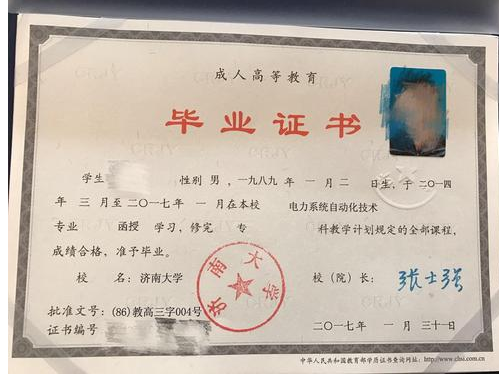 成人高等教育
毕业证书
学生 性别 男 ,一九八九 年 一 月 二 日生,于 二〇一四
年 三 月至 二〇一七 年 一 月在本校 电力系统自动化技术
专业 函授 学习,修完 专 科教学计划规定的全部课程,
成绩合格,准予毕业。
校 名: 济南大学 校(院)长: 张士强
济南大学
批准文号: (86)教高三字004号
证书编号 二〇一七 年 一 月 三十一 日
中华人民共和国教育部学历证书查询网址: http://www.chsi.com.cn